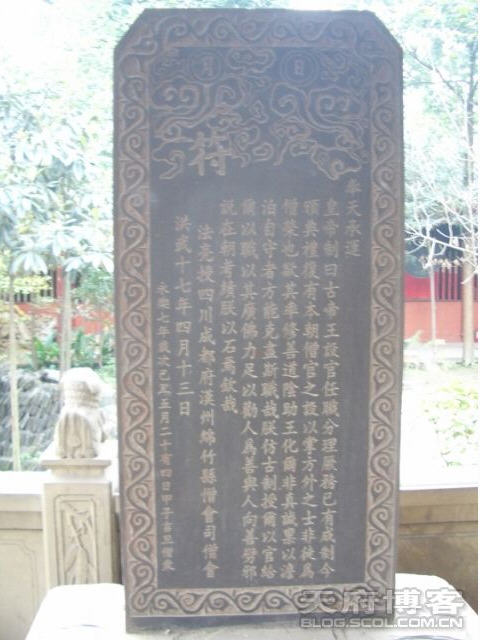 日 月
符
奉天承運
皇帝制曰古帝王設官任職分理庶務已有成制今
頒典禮復有本朝僧官之設以掌方外之士非徒為
僧榮也欲其率修善道陰助王化爾非真誠以澹
泊自守者方能克盡斯職哉朕仿古制授爾以官給
爾以職以其廣佛力足以勸人為善與人向善劈邪
說在朝考績朕以石焉敘哉
法亮授四川成都府漢州綿竹縣僧會司僧會
洪武十七年四月十三日
永樂七年歲次己丑五月二十有四日甲子吉旦僧
天府博客
BLOG.SCOL.COM.CN